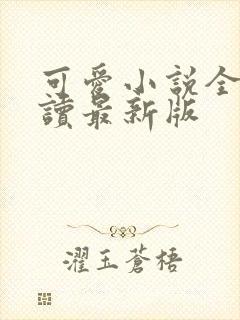 可愛小說全
讀最新版
濯玉蒼梧